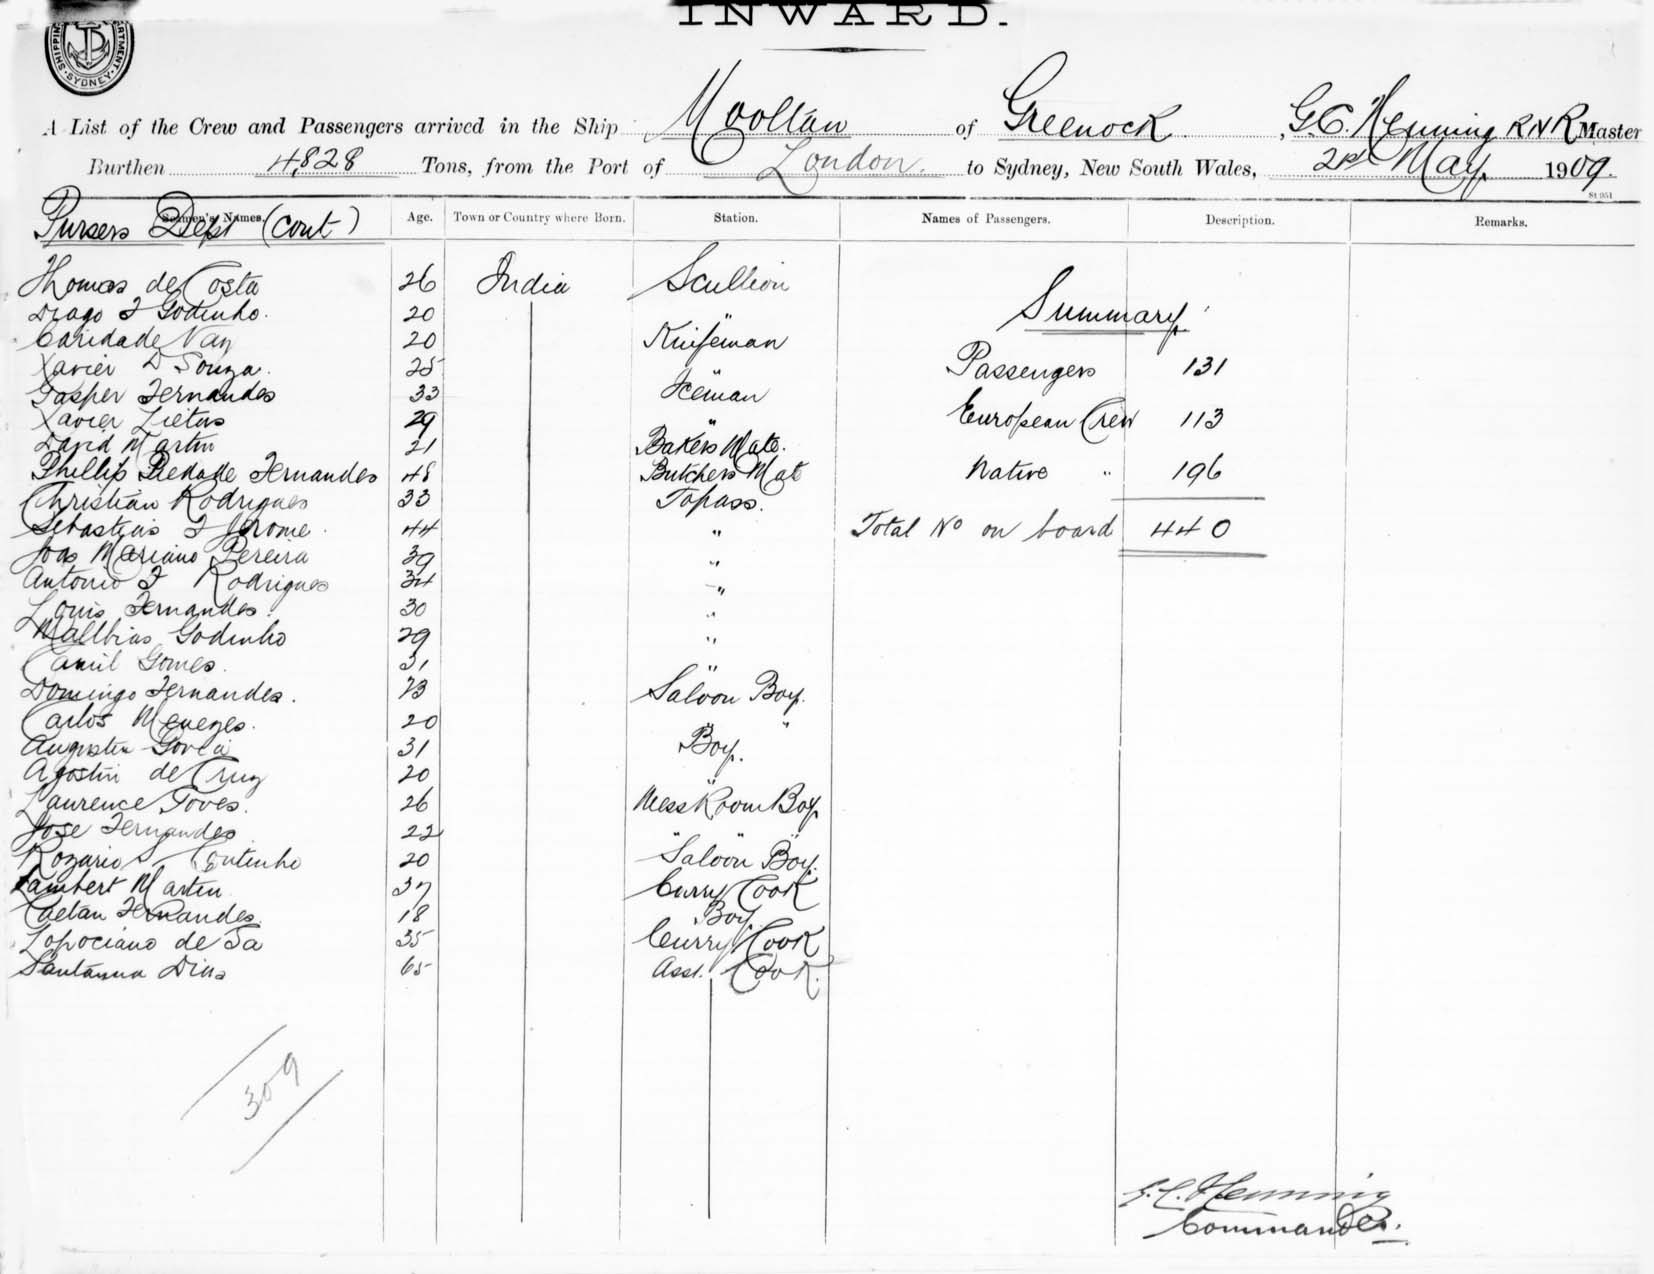 INWARD.
SHIPPING DEPARTMENT SYDNEY
A List of the Crew and Passengers arrived in the Ship Mooltan of Greenock, G.C. Henning RNR Master
Burthen 4,828 Tons, from the Port of London. to Sydney, New South Wales, May 1909.
St 951
Seamen's Names. Age. Town or Country where Born. Station. Names of Passengers. Description. Remarks.
Pursers Dept (cont)
Thomas de Costa 26 India Scullion
Diago F Godinho. 20 "
Summary
Caridade Vaz 20 Knifeman
Xavier D Souza. 25 "
Passengers 131
Gasper Fernandes 33 Iceman
Xavier 29 "
European Crew 113
David Martin 21 Bakers Mate.
Phillip Piedade Fernandes 48 Butchers Mate
Native " 196
Christian Rodrigues 33 Topass.
Sebastiao F Jerome. 44 "
Total No on board 440
Joao Mariano Pereira 39 "
Antonio F Rodrigues 34 "
Louis Fernandes. 30 "
Godinho 29 "
Camil Gomes. 31 "
Domingo Fernandes. 23 Saloon Boy.
Carlos Menezes. 20 " "
Augustin Govea 31 Boy.
Agostin de Cruz 20 "
Laurence Toves. 26 Mess Room Boy
Jose Fernandes 22 " " "
Rozario S Coutinho 20 Saloon Boy.
Lambert Martin 37 Curry Cook
Caetan Fernandes. 18 Boy.
de Sa 35 Curry Cook
Santanna Dias 65 Asst. Cook.
309
G.C. Henning
Commander.